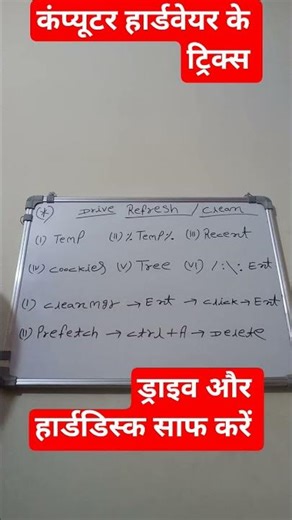 कंप्यूटर हार्डवेयर के
ट्रिक्स
(*) Drive Refresh / Clean
(I) Temp (II) %Temp% (III) Recent
(IV) Coockies (V) Tree (VI) /:\: Ent
(I) cleanmgr → Ent → click → Ent
(II) Prefetch → ctrl + A → Delete
ड्राइव और
हार्डडिस्क साफ करें